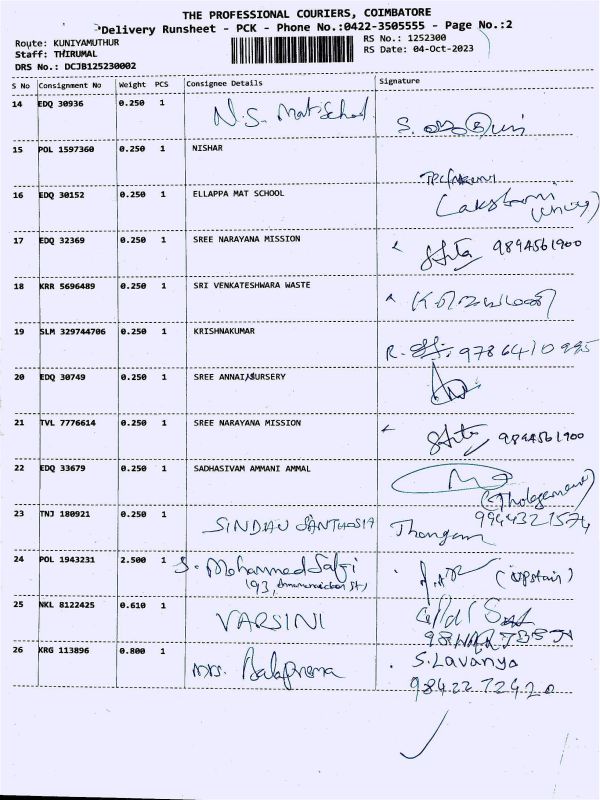 THE PROFESSIONAL COURIERS, COIMBATORE
Delivery Runsheet - PCK - Phone No.:0422-3505555 - Page No.:2
Route: KUNIYAMUTHUR
RS No.: 1252300
Staff: THIRUMAL
RS Date: 04-Oct-2023
DRS No.: DCJB125230002
S No Consignment No Weight PCS Consignee Details Signature
14 EDQ 30936 0.250 1 N.S. Mat School
15 POL 1597360 0.250 1 NISHAR
16 EDQ 30152 0.250 1 ELLAPPA MAT SCHOOL
17 EDQ 32369 0.250 1 SREE NARAYANA MISSION 9894561900
18 KRR 5696489 0.250 1 SRI VENKATESHWARA WASTE
19 SLM 329744706 0.250 1 KRISHNAKUMAR
20 EDQ 30749 0.250 1 SREE ANNAI NURSERY
21 TVL 7776614 0.250 1 SREE NARAYANA MISSION 9894561900
22 EDQ 33679 0.250 1 SADHASIVAM AMMANI AMMAL
23 TNJ 180921 0.250 1 SINDHU Thangam
24 POL 1943231 2.500 1 S. Mohammed (upstair)
25 NKL 8122425 0.610 1 VARSINI
26 KRG 113896 0.800 1 Mrs. Balaprema S. Lavanya
9842272420